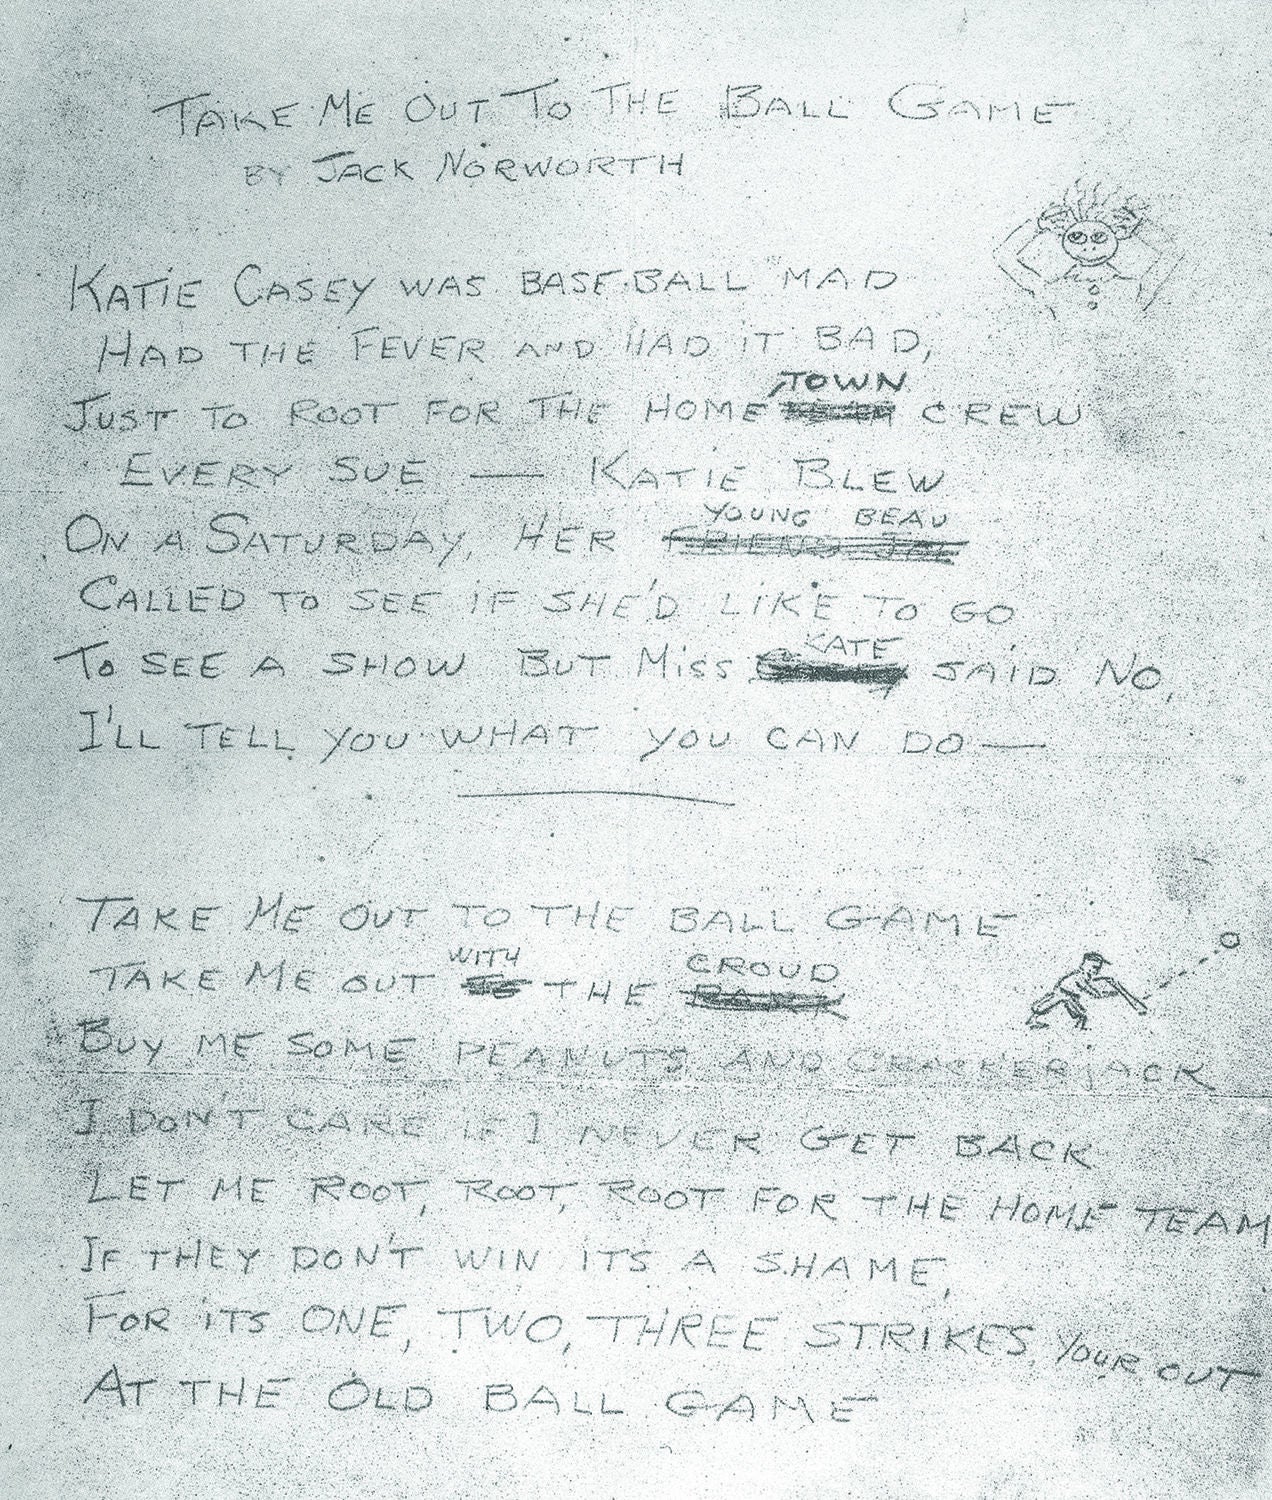 TAKE ME OUT TO THE BALL GAME
BY JACK NORWORTH
KATIE CASEY WAS BASE BALL MAD
HAD THE FEVER AND HAD IT BAD,
TOWN
JUST TO ROOT FOR THE HOME CREW
EVERY SUE — KATIE BLEW
YOUNG BEAU
ON A SATURDAY, HER FRIEND
CALLED TO SEE IF SHE'D LIKE TO GO
KATE
TO SEE A SHOW BUT MISS SAID NO,
I'LL TELL YOU WHAT YOU CAN DO —
TAKE ME OUT TO THE BALL GAME
WITH CROUD
TAKE ME OUT THE
BUY ME SOME PEANUTS AND CRACKERJACK
I DON'T CARE IF I NEVER GET BACK
LET ME ROOT, ROOT, ROOT FOR THE HOME TEAM
IF THEY DON'T WIN ITS A SHAME,
FOR ITS ONE, TWO, THREE STRIKES YOUR OUT
AT THE OLD BALL GAME